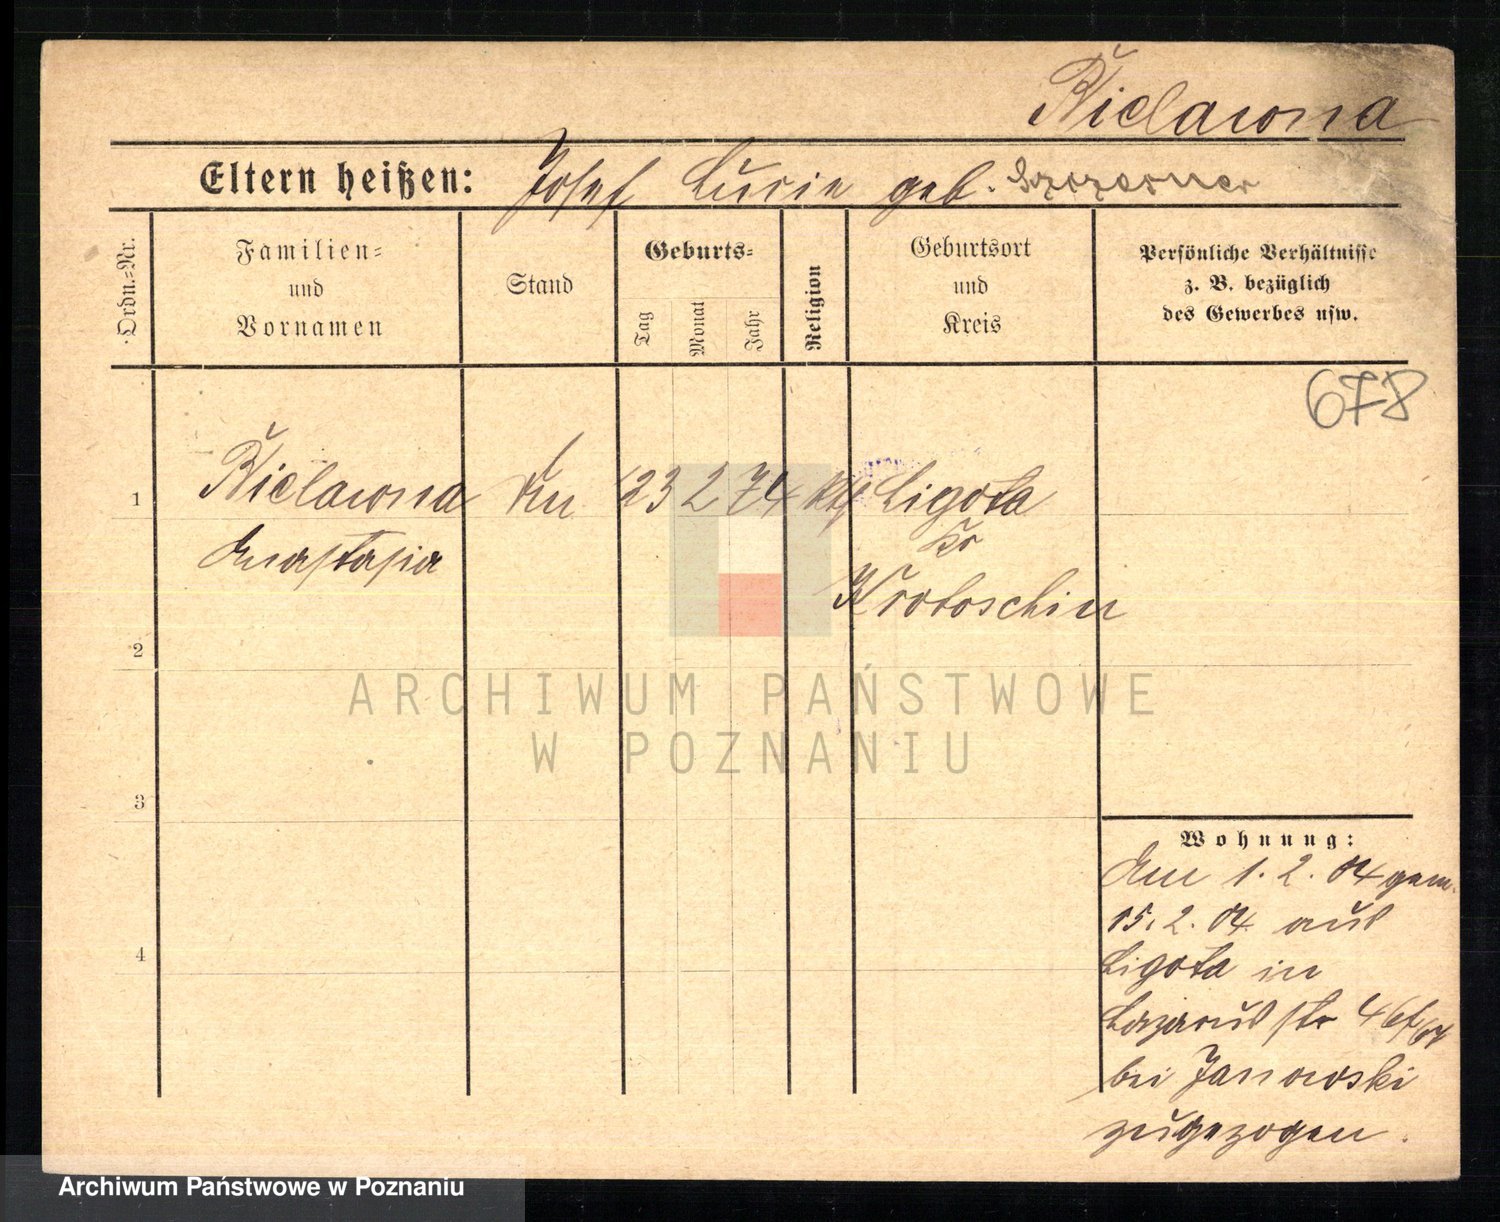 Bielawna
Eltern heißen: Josef Lucie geb.
Ordn.=Nr.
Familien=
und
Vornamen
Stand
Geburts=
Tag
Monat
Jahr
Religion
Geburtsort
und
Kreis
Persönliche Verhältnisse
z. B. bezüglich
des Gewerbes usw.
678
1 Bielawna 23 2 74 kth Ligota
Anastasia Kr
Krotoschin
2
3
4
Wohnung:
Am 1. 2. 04 gem.
15. 2. 04 aus
Ligota in
Lazarus str 4
bei Janowski
zugezogen.
ARCHIWUM PAŃSTWOWE
W POZNANIU
Archiwum Państwowe w Poznaniu